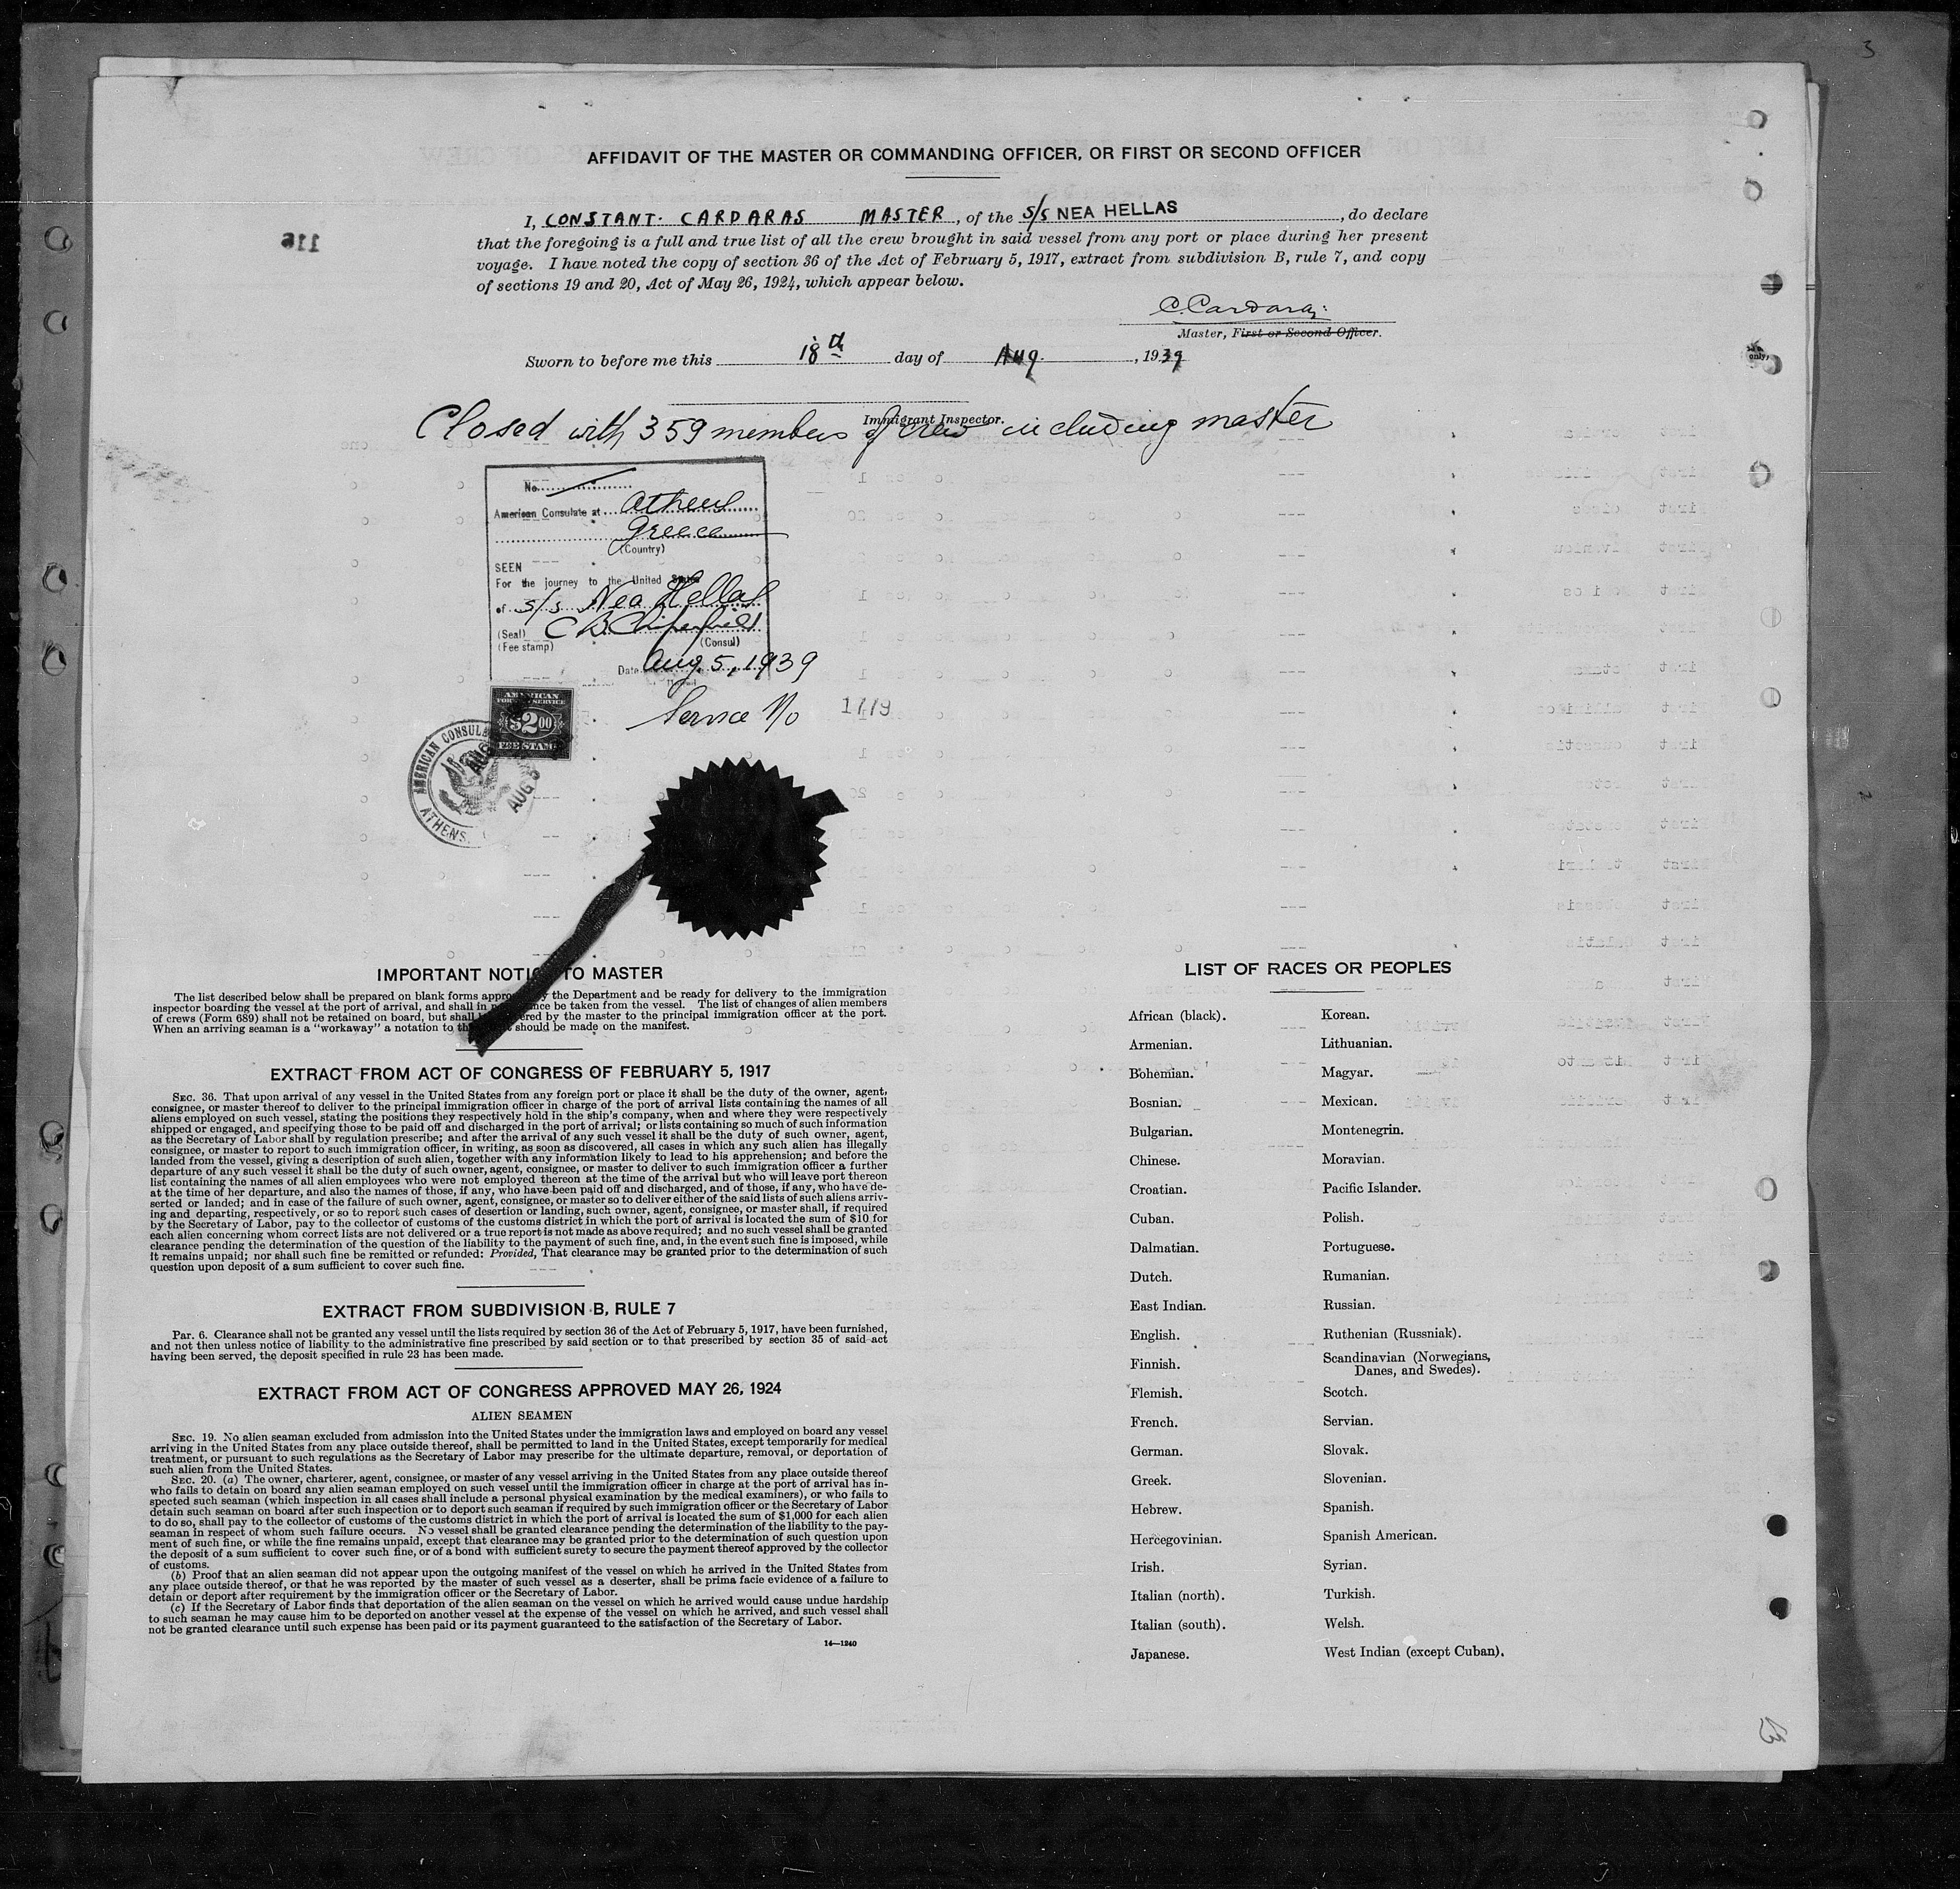 3
AFFIDAVIT OF THE MASTER OR COMMANDING OFFICER, OR FIRST OR SECOND OFFICER
I, CONSTANT. CARDARAS MASTER, of the S/S NEA HELLAS, do declare
that the foregoing is a full and true list of all the crew brought in said vessel from any port or place during her present
voyage. I have noted the copy of section 36 of the Act of February 5, 1917, extract from subdivision B, rule 7, and copy
of sections 19 and 20, Act of May 26, 1924, which appear below.
C. Cardaras
Master, First or Second Officer.
Sworn to before me this 18th day of Aug., 1939
Immigrant Inspector.
Closed with 359 members of crew including master
No.
American Consulate at Athens
Greece
(Country)
SEEN
For the journey to the United States
of S/S Nea Hellas
(Seal)
(Fee stamp)
(Consul)
Date Aug. 5, 1939
AMERICAN
FOREIGN SERVICE
$2.00
FEE STAMP
Service No 1779
AMERICAN CONSULATE
ATHENS
AUG
AUG 5
IMPORTANT NOTICE TO MASTER
The list described below shall be prepared on blank forms by the Department and be ready for delivery to the immigration
inspector boarding the vessel at the port of arrival, and shall in be taken from the vessel. The list of changes of alien members
of crews (Form 689) shall not be retained on board, but shall by the master to the principal immigration officer at the port.
When an arriving seaman is a "workaway" a notation to should be made on the manifest.
EXTRACT FROM ACT OF CONGRESS OF FEBRUARY 5, 1917
SEC. 36. That upon arrival of any vessel in the United States from any foreign port or place it shall be the duty of the owner, agent,
consignee, or master thereof to deliver to the principal immigration officer in charge of the port of arrival lists containing the names of all
aliens employed on such vessel, stating the positions they respectively hold in the ship's company, when and where they were respectively
shipped or engaged, and specifying those to be paid off and discharged in the port of arrival; or lists containing so much of such information
as the Secretary of Labor shall by regulation prescribe; and after the arrival of any such vessel it shall be the duty of such owner, agent,
consignee, or master to report to such immigration officer, in writing, as soon as discovered, all cases in which any such alien has illegally
landed from the vessel, giving a description of such alien, together with any information likely to lead to his apprehension; and before the
departure of any such vessel it shall be the duty of such owner, agent, consignee, or master to deliver to such immigration officer a further
list containing the names of all alien employees who were not employed thereon at the time of the arrival but who will leave port thereon
at the time of her departure, and also the names of those, if any, who have been paid off and discharged, and of those, if any, who have de-
serted or landed; and in case of the failure of such owner, agent, consignee, or master so to deliver either of the said lists of such aliens arriv-
ing and departing, respectively, or so to report such cases of desertion or landing, such owner, agent, consignee, or master shall, if required
by the Secretary of Labor, pay to the collector of customs of the customs district in which the port of arrival is located the sum of $10 for
each alien concerning whom correct lists are not delivered or a true report is not made as above required; and no such vessel shall be granted
clearance pending the determination of the question of the liability to the payment of such fine, and, in the event such fine is imposed, while
it remains unpaid; nor shall such fine be remitted or refunded: Provided, That clearance may be granted prior to the determination of such
question upon deposit of a sum sufficient to cover such fine.
EXTRACT FROM SUBDIVISION B, RULE 7
Par. 6. Clearance shall not be granted any vessel until the lists required by section 36 of the Act of February 5, 1917, have been furnished,
and not then unless notice of liability to the administrative fine prescribed by said section or to that prescribed by section 35 of said act
having been served, the deposit specified in rule 23 has been made.
EXTRACT FROM ACT OF CONGRESS APPROVED MAY 26, 1924
ALIEN SEAMEN
SEC. 19. No alien seaman excluded from admission into the United States under the immigration laws and employed on board any vessel
arriving in the United States from any place outside thereof, shall be permitted to land in the United States, except temporarily for medical
treatment, or pursuant to such regulations as the Secretary of Labor may prescribe for the ultimate departure, removal, or deportation of
such alien from the United States.
SEC. 20. (a) The owner, charterer, agent, consignee, or master of any vessel arriving in the United States from any place outside thereof
who fails to detain on board any alien seaman employed on such vessel until the immigration officer in charge at the port of arrival has in-
spected such seaman (which inspection in all cases shall include a personal physical examination by the medical examiners), or who fails to
detain such seaman on board after such inspection or to deport such seaman if required by such immigration officer or the Secretary of Labor
to do so, shall pay to the collector of customs of the customs district in which the port of arrival is located the sum of $1,000 for each alien
seaman in respect of whom such failure occurs. No vessel shall be granted clearance pending the determination of the liability to the pay-
ment of such fine, or while the fine remains unpaid, except that clearance may be granted prior to the determination of such question upon
the deposit of a sum sufficient to cover such fine, or of a bond with sufficient surety to secure the payment thereof approved by the collector
of customs.
(b) Proof that an alien seaman did not appear upon the outgoing manifest of the vessel on which he arrived in the United States from
any place outside thereof, or that he was reported by the master of such vessel as a deserter, shall be prima facie evidence of a failure to
detain or deport after requirement by the immigration officer or the Secretary of Labor.
(c) If the Secretary of Labor finds that deportation of the alien seaman on the vessel on which he arrived would cause undue hardship
to such seaman he may cause him to be deported on another vessel at the expense of the vessel on which he arrived, and such vessel shall
not be granted clearance until such expense has been paid or its payment guaranteed to the satisfaction of the Secretary of Labor.
14—1240
LIST OF RACES OR PEOPLES
African (black).
Armenian.
Bohemian.
Bosnian.
Bulgarian.
Chinese.
Croatian.
Cuban.
Dalmatian.
Dutch.
East Indian.
English.
Finnish.
Flemish.
French.
German.
Greek.
Hebrew.
Hercegovinian.
Irish.
Italian (north).
Italian (south).
Japanese.
Korean.
Lithuanian.
Magyar.
Mexican.
Montenegrin.
Moravian.
Pacific Islander.
Polish.
Portuguese.
Rumanian.
Russian.
Ruthenian (Russniak).
Scandinavian (Norwegians,
Danes, and Swedes).
Scotch.
Servian.
Slovak.
Slovenian.
Spanish.
Spanish American.
Syrian.
Turkish.
Welsh.
West Indian (except Cuban).